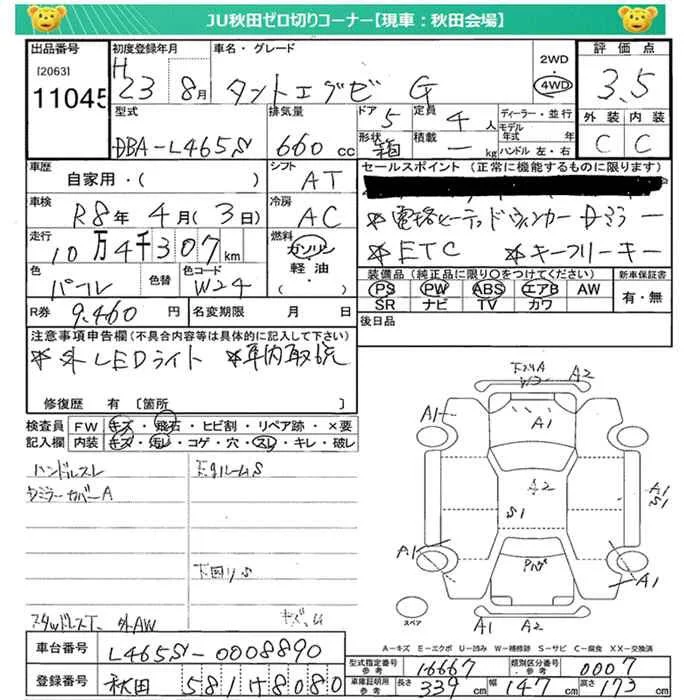 JU秋田ゼロ切りコーナー【現車：秋田会場】
出品番号 初度登録年月 車名・グレード 2WD 評価点
[2063] H 23年 8月 タントエグゼ G 4WD 3.5
11045
型式 排気量 ドア 定員 ディーラー・並行 外装 内装
DBA-L465S 660cc 5 4人 モデル年式 年 C C
形状 箱 積載 ー kg ハンドル 左・右
車歴 シフト セールスポイント (正常に機能するものに限ります)
自家用・( ) AT
車検 冷房 ※電格ヒーテッドウィンカードミラー
R8年 4月(3日) AC
走行 燃料 ※ETC ※キーフリーキー
10万4千307km ガソリン
軽油・( )
色 色替 色コード 装備品(純正品に限り○をつけてください) 新車保証書
パール W24 PS PW ABS エアB AW 有・無
SR ナビ TV カワ
R券 9,460円 名変期限 月 日 後日品
注意事項申告欄(不具合内容等は具体的に記入して下さい)
※外LEDライト ※車内取説
修復歴 有 [箇所 ]
検査員 FW キズ・飛石・ヒビ割・リペア跡・×要
記入欄 内装 キズ・汚レ・コゲ・穴・スレ・キレ・破レ
ハンドルスレ
ミラーカバーA ルームS
下回りS
スタッドレスT 外AW
A2
A1 A1
A2
A1 S1
S1
A1 A1
A1 A2
スペア
A－キズ E－エクボ U－凹み W－補修跡 S－サビ C－腐食 XX－交換済
車台番号 L465S-0008890
型式指定番号 参考 16667 類別区分番号 参考 0007
登録番号 秋田 581 け 8080
車庫証明用 参考 長さ 339cm 幅 147cm 高さ 173cm